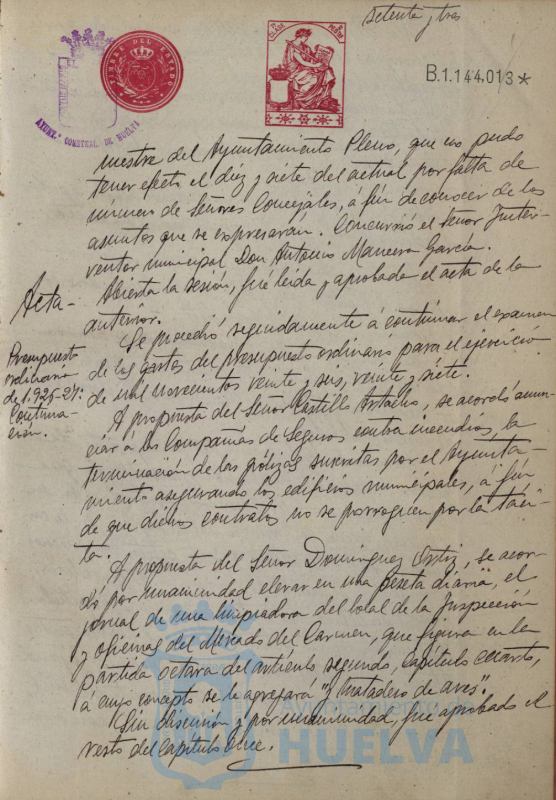 setenta y tres
TIMBRE DEL ESTADO
B.1.144.013*
AYUNT.º CONSTNAL. DE HUELVA
mestre del Ayuntamiento Pleno, que no pudo
tener efecto el diez y siete del actual por falta de
número de Señores Concejales, á fin de conocer de los
asuntos que se expresarán. Concurrió el Señor Inter-
ventor municipal Don Antonio Mancera García.
Acta-
Abierta la sesión, fué leída y aprobada el acta de la
anterior.
Presupuesto
ordinario
de 1.926-27:
Continua-
ción.
Se procedió seguidamente á continuar el examen
de los gastos del presupuesto ordinario para el ejercicio
de mil novecientos veinte y seis, veinte y siete.
A propuesta del Señor Castillo, se acordó anun-
ciar á las Compañías de Seguros contra incendios, la
terminación de las pólizas suscritas por el Ayunta-
miento asegurando los edificios municipales, á fin
de que dichos contratos no se prorroguen por la táci-
ta.
A propuesta del Señor Domínguez Ortiz, se acor-
dó por unanimidad elevar en una peseta diaria, el
jornal de una limpiadora del local de la Inspección
y oficinas del Mercado del Carmen, que figura en la
partida octava del artículo segundo, Capítulo cuarto,
á cuyo concepto se le agregará "y matadero de aves".
Sin discusión y por unanimidad, fué aprobado el
resto del Capítulo once.
Ayuntamiento de
HUELVA